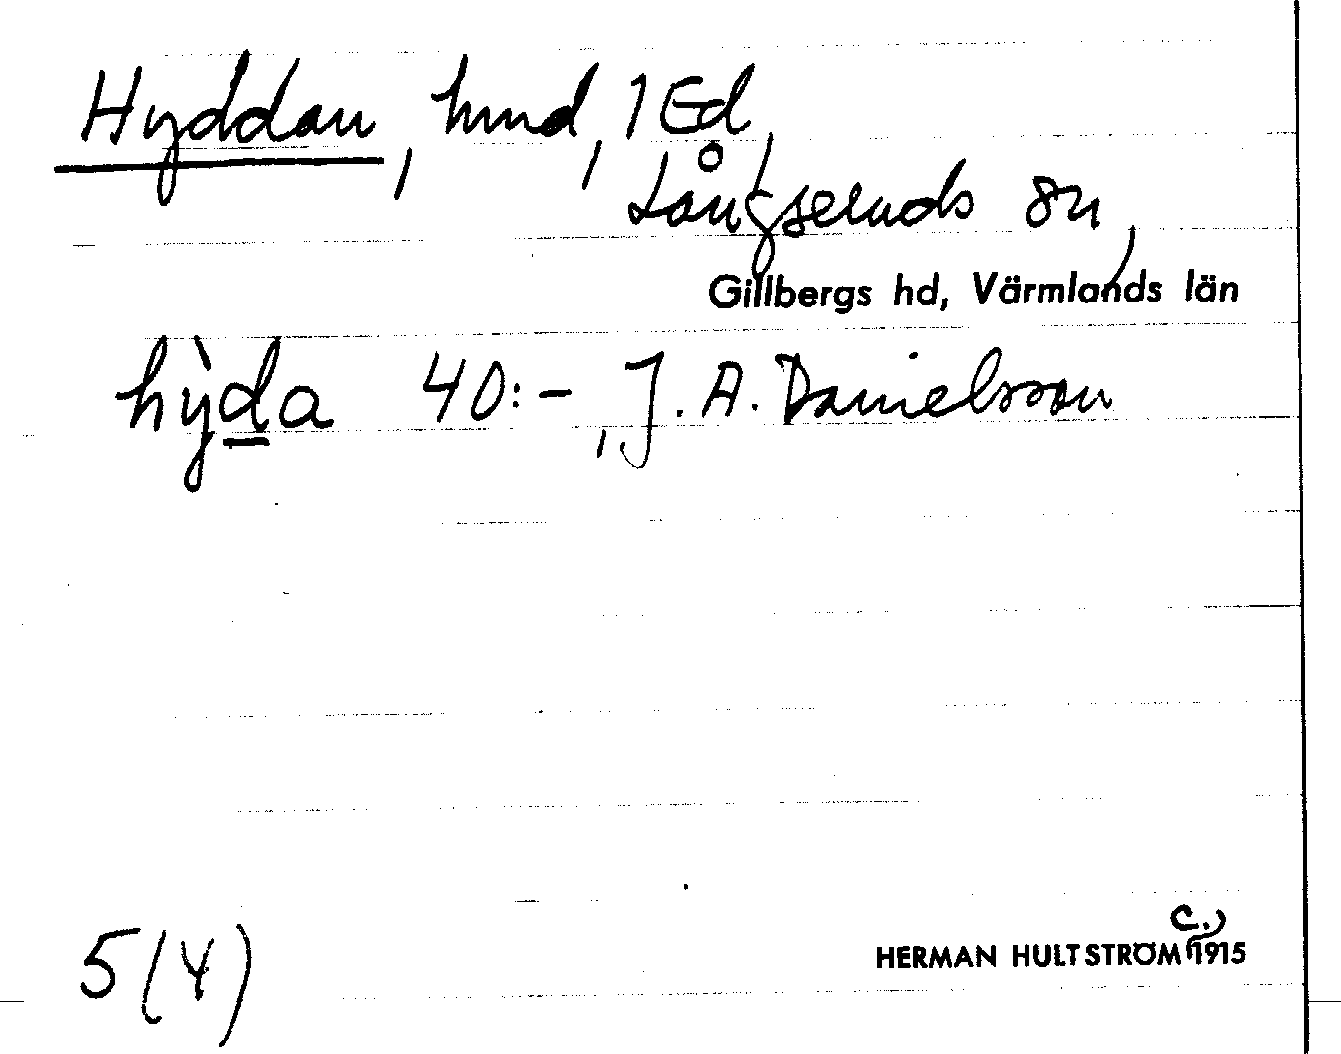 Hyddan, hmd, 1 Ed,
Långseruds sn,
Gillbergs hd, Värmlands län
hỳda 40:-, J. A. Danielsson
C.)
HERMAN HULTSTRÖM 1915
5(4)